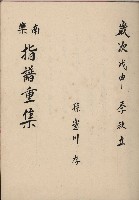 歲次戊申季秋立
孫岑川存
南樂
指譜重集